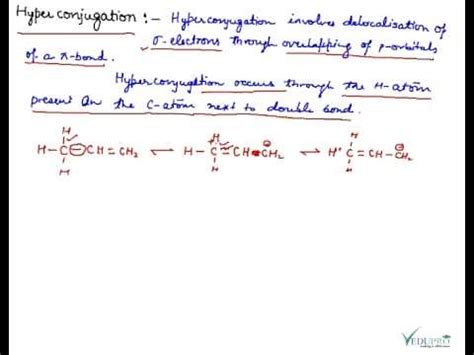 Hyperconjugation :- Hyperconjugation involves delocalisation of
σ-electrons through overlapping of p-orbitals
of a π-bond.
Hyperconjugation occurs through the H-atom
present on the C-atom next to double bond.
H H H
H-C-CH=CH₂ ⇌ H-C=CH-CH₂ ⇌ H⁺ C=CH-CH₂
H H H
VEDUPRO